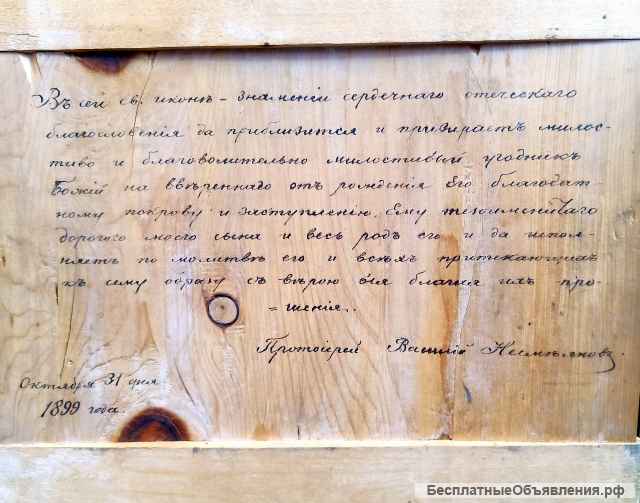 Въ сей св. иконѣ – знаменіи сердечнаго отеческаго
благословенія да приблизится и призираетъ милос-
тиво и благоволительно милостивый угодникъ
Божій на ввѣреннаго отъ рожденія Его благодат-
ному покрову и заступленію, Ему тезоименитаго
дорогого моего сына и весь родъ его и да испол-
няетъ по молитвѣ его и всѣхъ притекающихъ
къ сему образу съ вѣрою вся благая ихъ про-
=шенія..
Протоіерей Василій
Октября 31 дня
1899 года.
БесплатныеОбъявления.рф